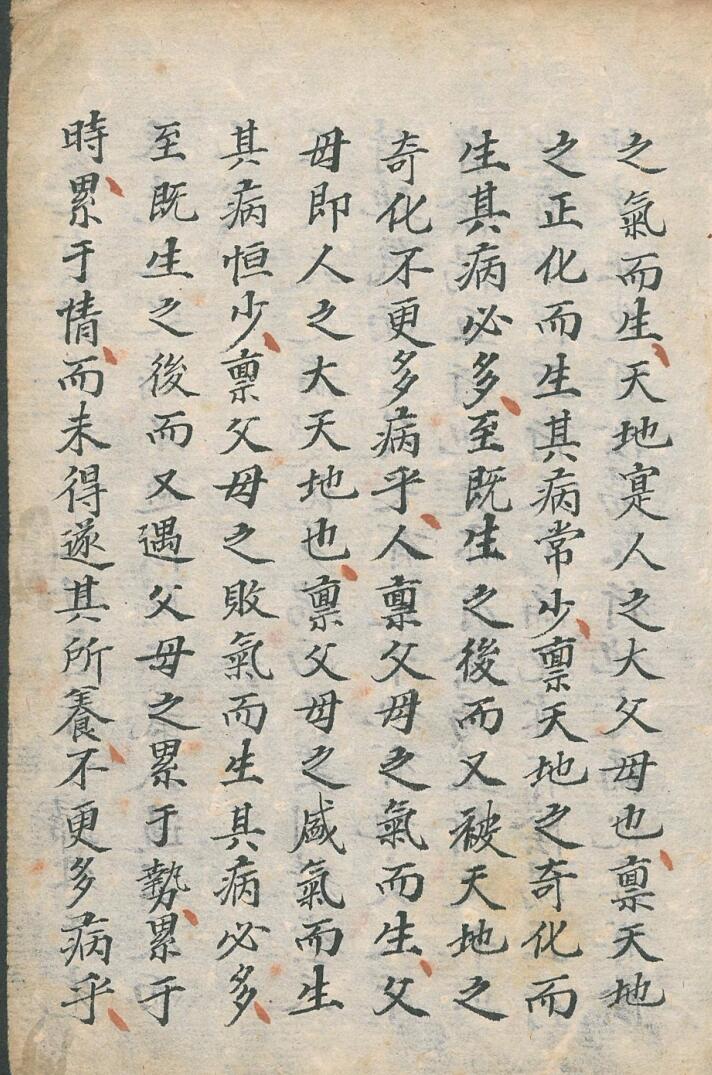 之氣而生、天地寔人之大父母也、禀天地
之正化而生其病常少、禀天地之奇化而
生其病必多、至既生之後而又被天地之
奇化不更多病乎、人禀父母之氣而生、父
母即人之大天地也、禀父母之盛氣而生
其病恒少、禀父母之敗氣而生其病必多、
至既生之後而又遇父母之累于勢、累于
時、累于情、而未得遂其所養、不更多病乎、